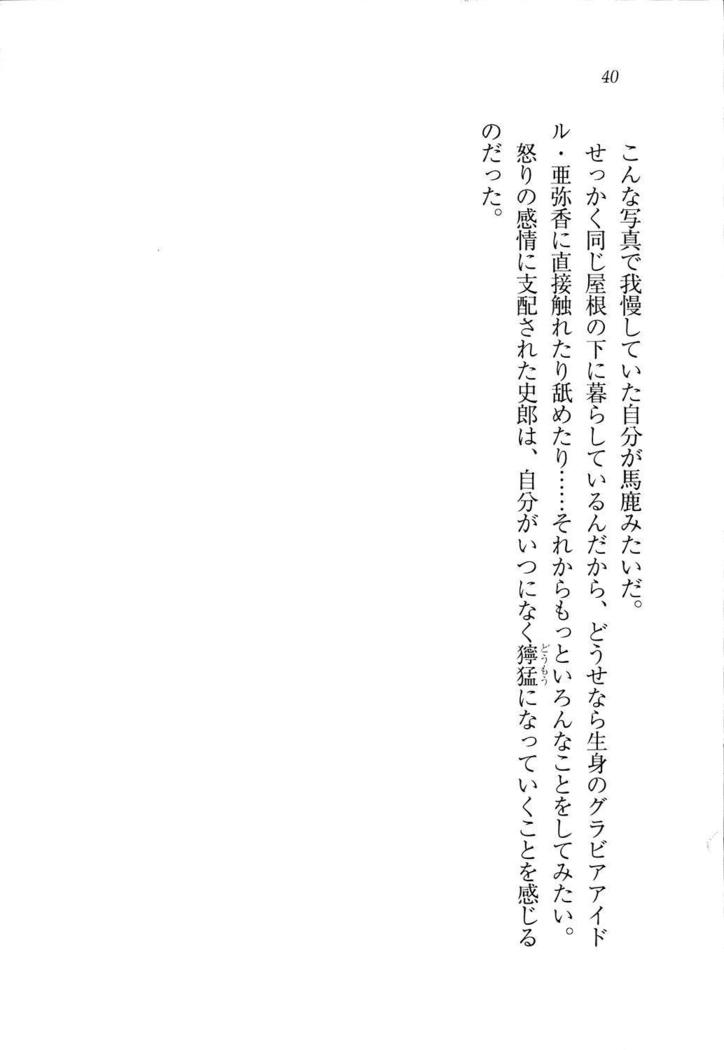 40
こんな写真で我慢していた自分が馬鹿みたいだ。
せっかく同じ屋根の下に暮らしているんだから、どうせなら生身のグラビアアイド
ル・亜弥香に直接触れたり舐めたり……それからもっといろんなことをしてみたい。
怒りの感情に支配された史郎は、自分がいつになく獰猛になっていくことを感じる
どうもう
のだった。